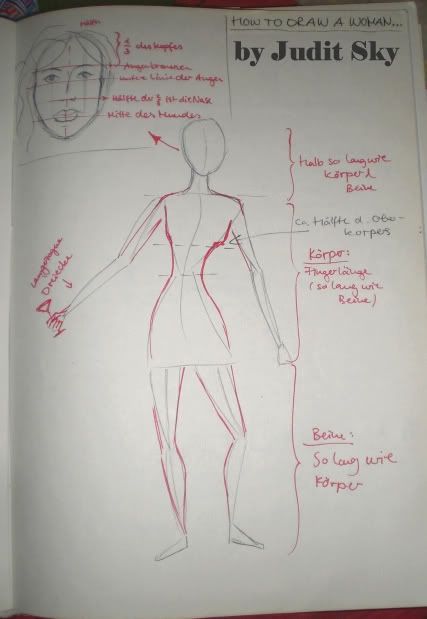 HOW TO DRAW A WOMAN...
by Judit Sky
2/3 des Kopfes
Augenbrauen
untere Linie der Augen
Hälfte der 2/3 ist die Nase
Mitte des Mundes
halb so lang wie
Körper/
Beine
ca. Hälfte d. Ober-
körpers
Körper:
Fingerlänge
(so lang wie
Beine)
Dreiecke
Beine:
So lang wie
Körper